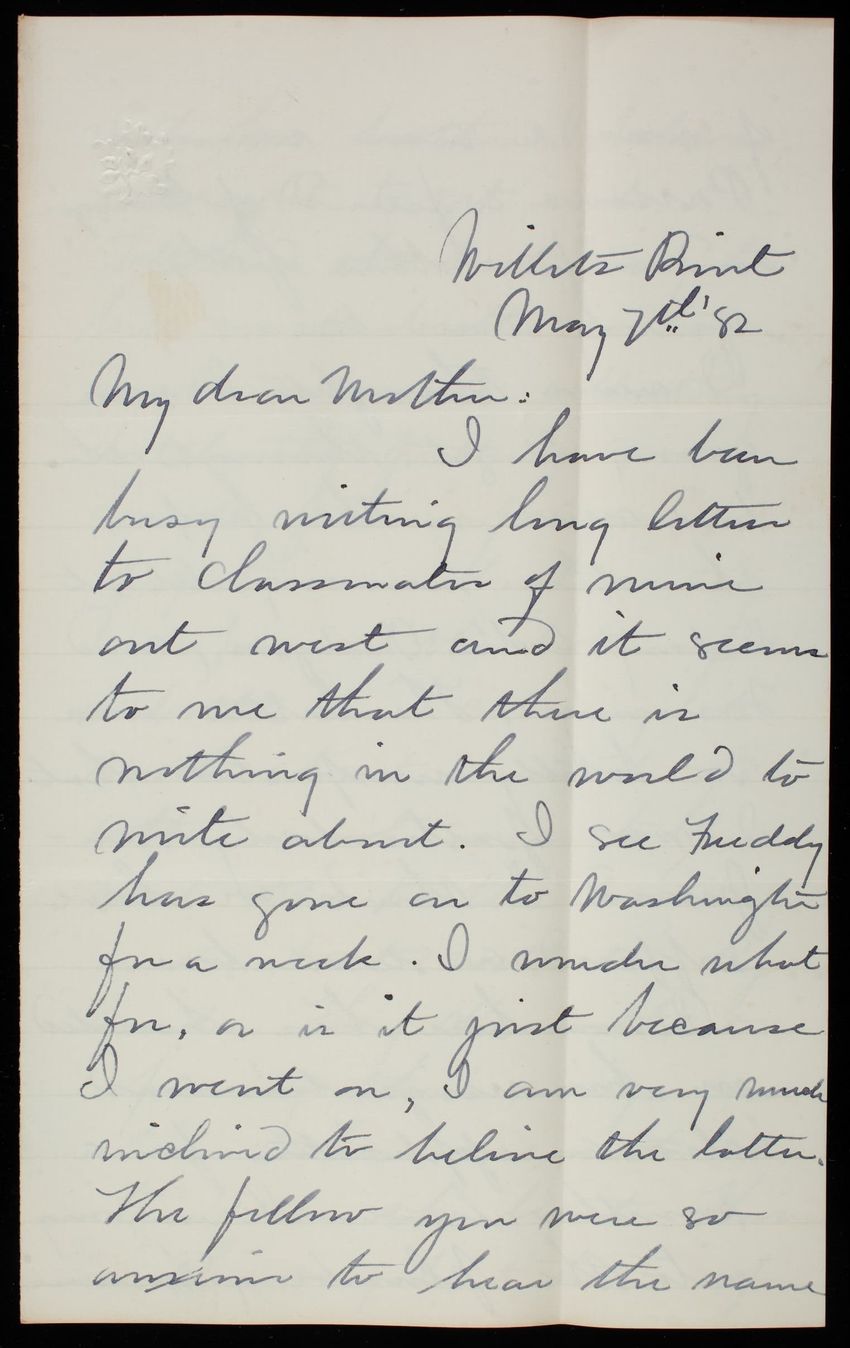 Willets Point
May 7th '82
My dear Mother:
I have been
busy writing long letters
to classmates of mine
out west and it seems
to me that there is
nothing in the world to
write about. I see Freddy
has gone on to Washington
for a week. I wonder what
for, or is it just because
I went on, I am very much
inclined to believe the latter.
The fellow you were so
anxious to hear the name